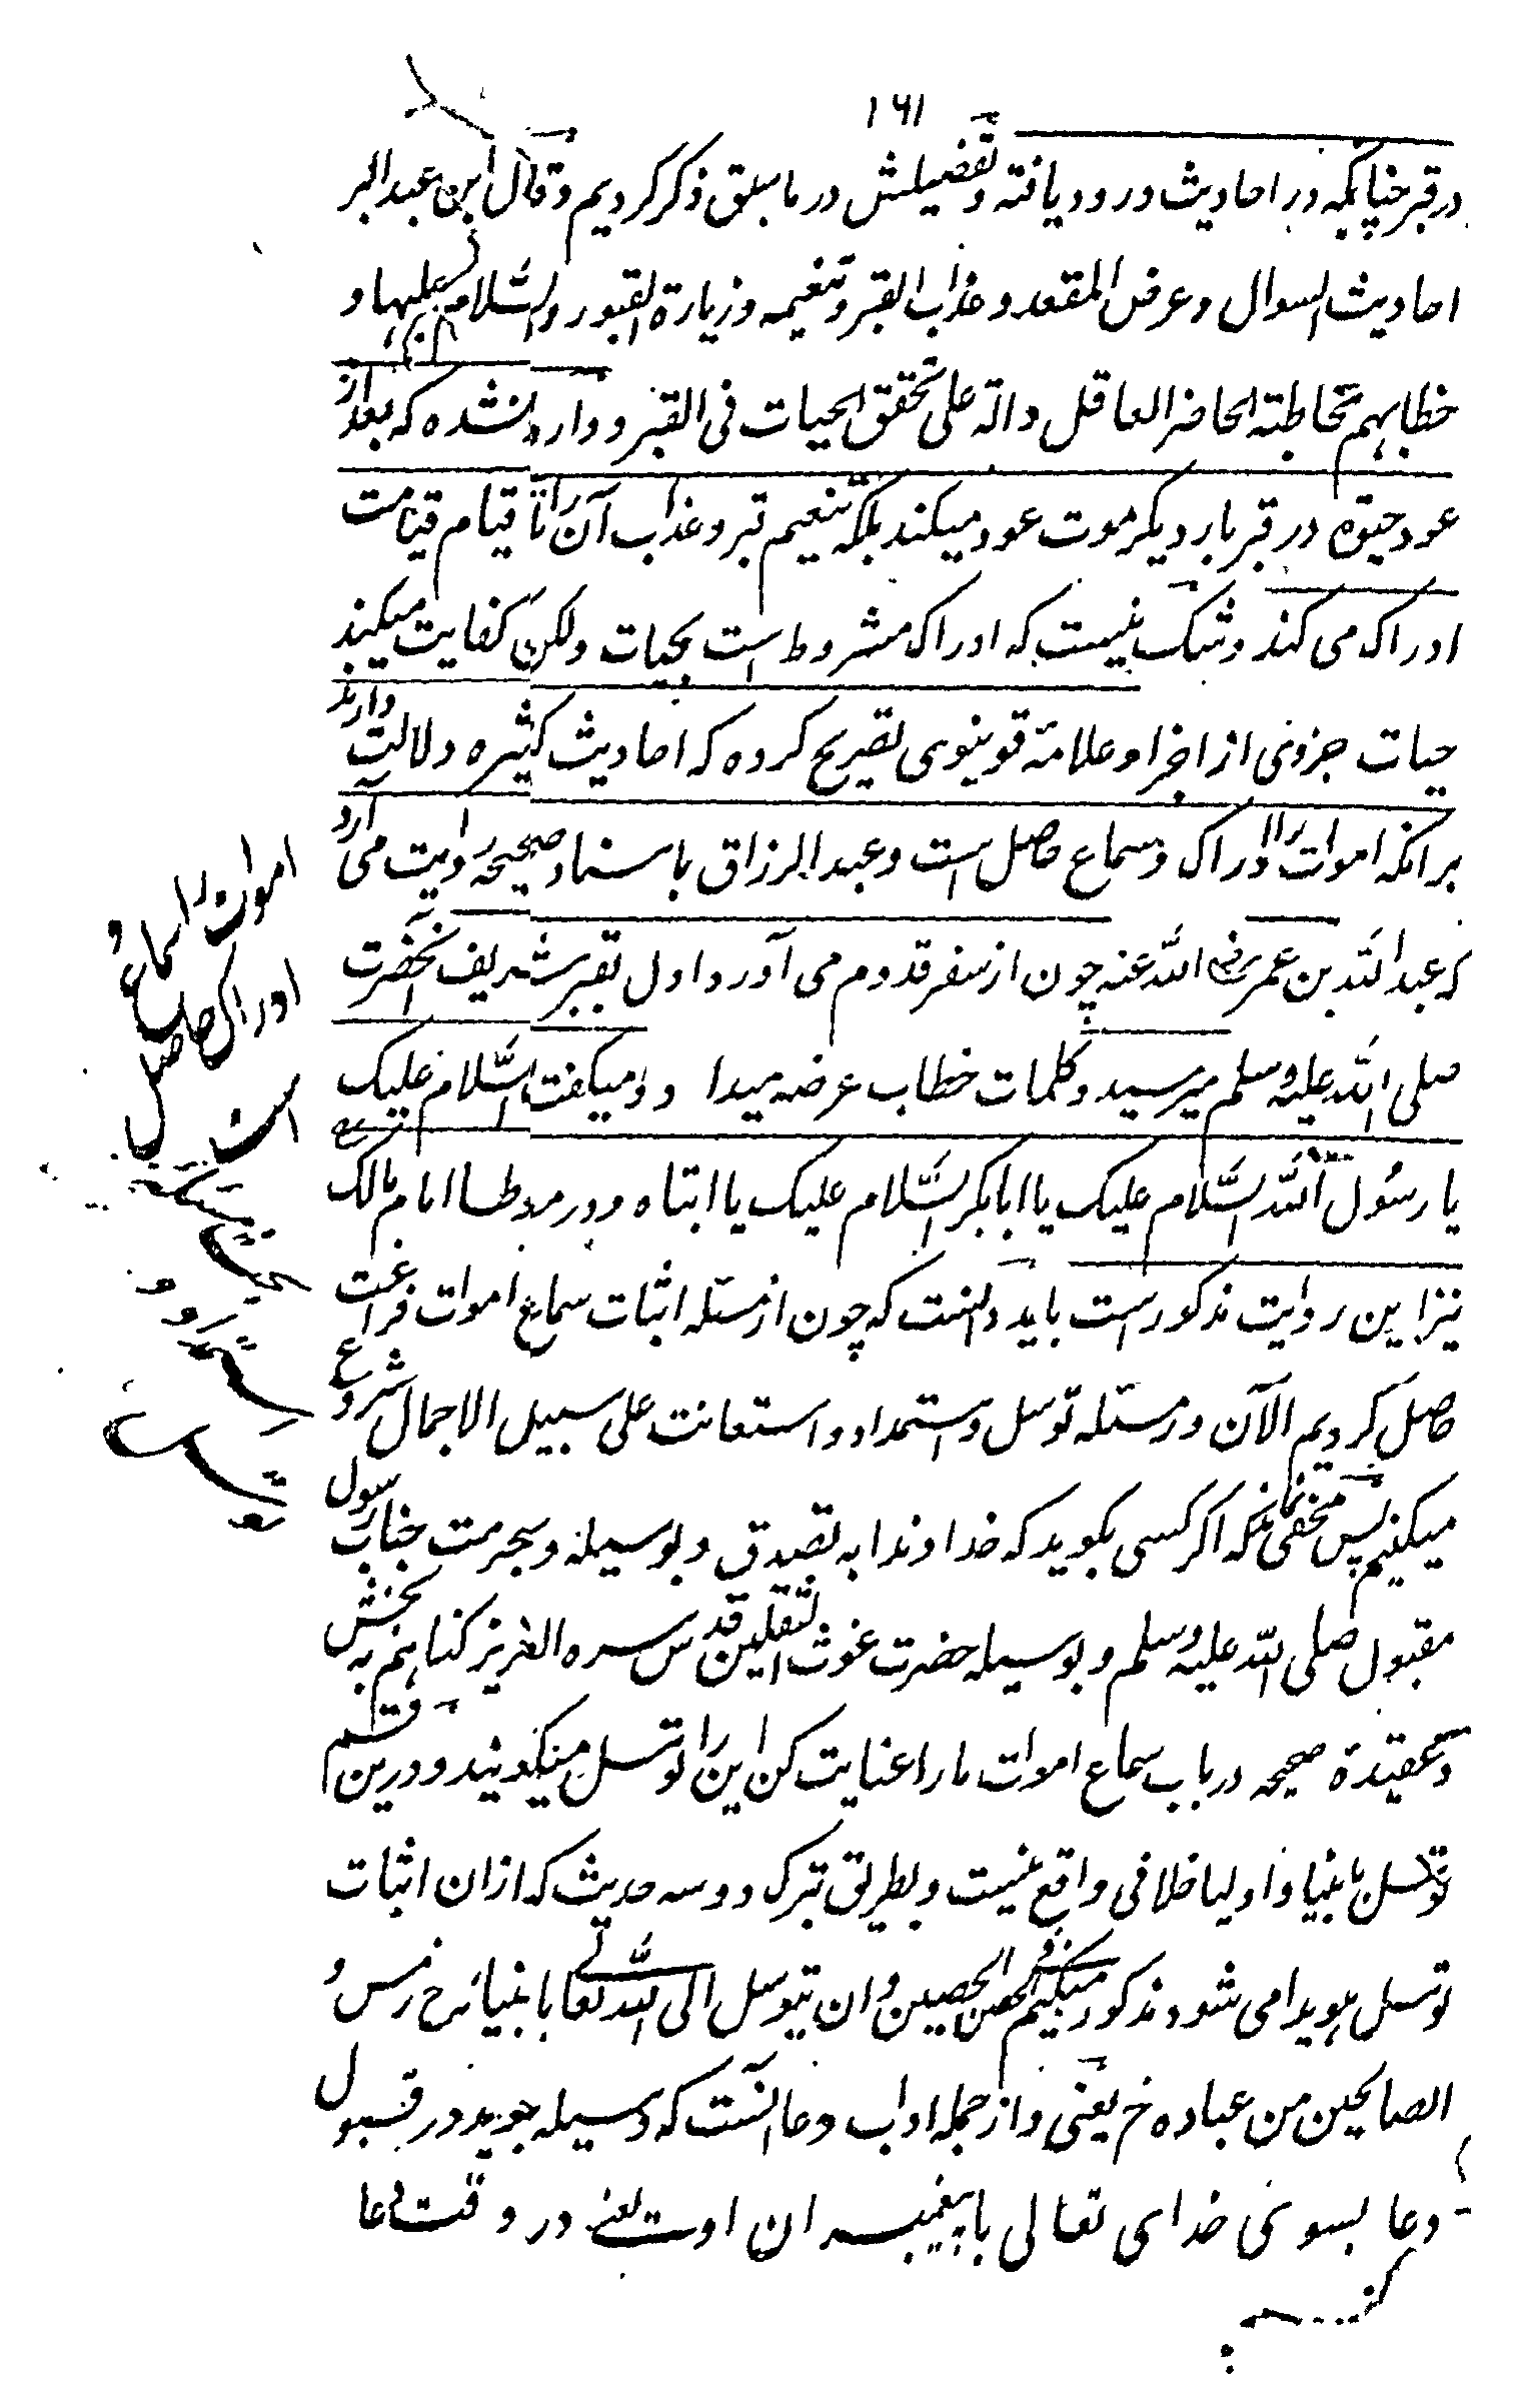 ۱۶۱
در قبر چنانکه در احادیث ورود یافته و تفصیلش در ما سبق ذکر کردیم و قال ابن عبد البر
احادیث السوال و عرض المقعد و عذاب القبر و تنعیمه و زیارة القبور والسّلام علیها و
خطابهم مخاطبة الحاضر العاقل دالة علی تحقق الحیات فی القبر و وارد نشده که بعد از
عود حیوة در قبر بار دیگر موت عود میکند بلکه تنعیم قبر و عذاب آن را تا قیام قیامت
ادراک می کند و شک نیست که ادراک مشروط است بحیات ولکن کفایت میکند
حیات جزوی از اجزا و علامة قونیوی تصریح کرده که احادیث کثیره دلالت دارند
بر آنکه اموات را ادراک و سماع حاصل است و عبد الرزاق باسناد صحیحه روایت می آرد
که عبد اللّه بن عمر رضی اللّه عنه چون از سفر قدوم می آورد اول بقبر شریف آنحضرت
صلی اللّه علیه وسلم میرسید و کلمات خطاب عرضه میداد و میگفت السّلام علیک
یا رسول اللّه السّلام علیک یا ابابکر السّلام علیک یا ابتاه و در موطا امام مالک
نیز این روایت مذکور است باید دانست که چون از مسئله اثبات سماع اموات فراغت
حاصل کردیم الآن در مسئله توسل و استمداد و استعانت علی سبیل الاجمال شروع
میکنیم پس مخفی نماند که اگر کسی بگوید که خداوندا به تصدق و بوسیله و بحرمت جناب رسول
مقبول صلی اللّه علیه وسلم و بوسیله حضرت غوث الثقلین قدس سره العزیز گناهم به بخش
و عقیدة صحیحه در باب سماع اموات ما را عنایت کن این را توسل میگویند و درین قسم
توسل بانبیا و اولیا خلافی واقع نیست و بطریق تبرک دو سه حدیث که ازان اثبات
توسل هویدا می شود مذکور میکنیم فی الحصن الحصین و ان یتوسل الی اللّه تعالی بانبیائه خ ر مس و
الصالحین من عباده خ یعنی و از جمله اداب دعا آنست که وسیله جوید در قبول
دعا بسوی خدای تعالی با پیغمبران اوست یعنی در وقت دعا
اموات را سماع و
ادراک حاصل
است